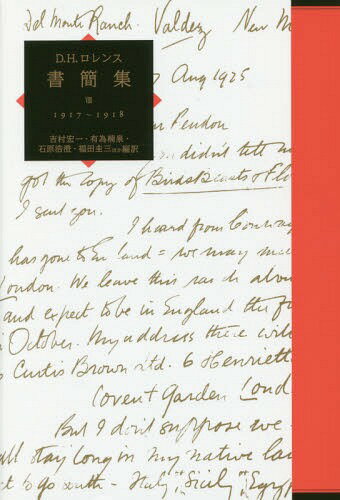 Del Monte Ranch. Valdez New M
Aug 1925
D.H.ロレンス
書簡集
Ⅷ
1917～1918
吉村宏一・有為楠泉・
石原浩澄・福田圭三ほか編訳
Pendon
didn't tell
got the copy of Birds Beasts & Flo
I sent you.
I heard from
has gone to En land = we may
London. We leave this ran ch abou
and expect to be in England the fi
October. My address there will
Curtis Brown Ltd. 6 Henriett
Covent Garden Lond
But I don't suppose we
all stay long in my native lan
t to go south – Italy, Sicily or Egyp